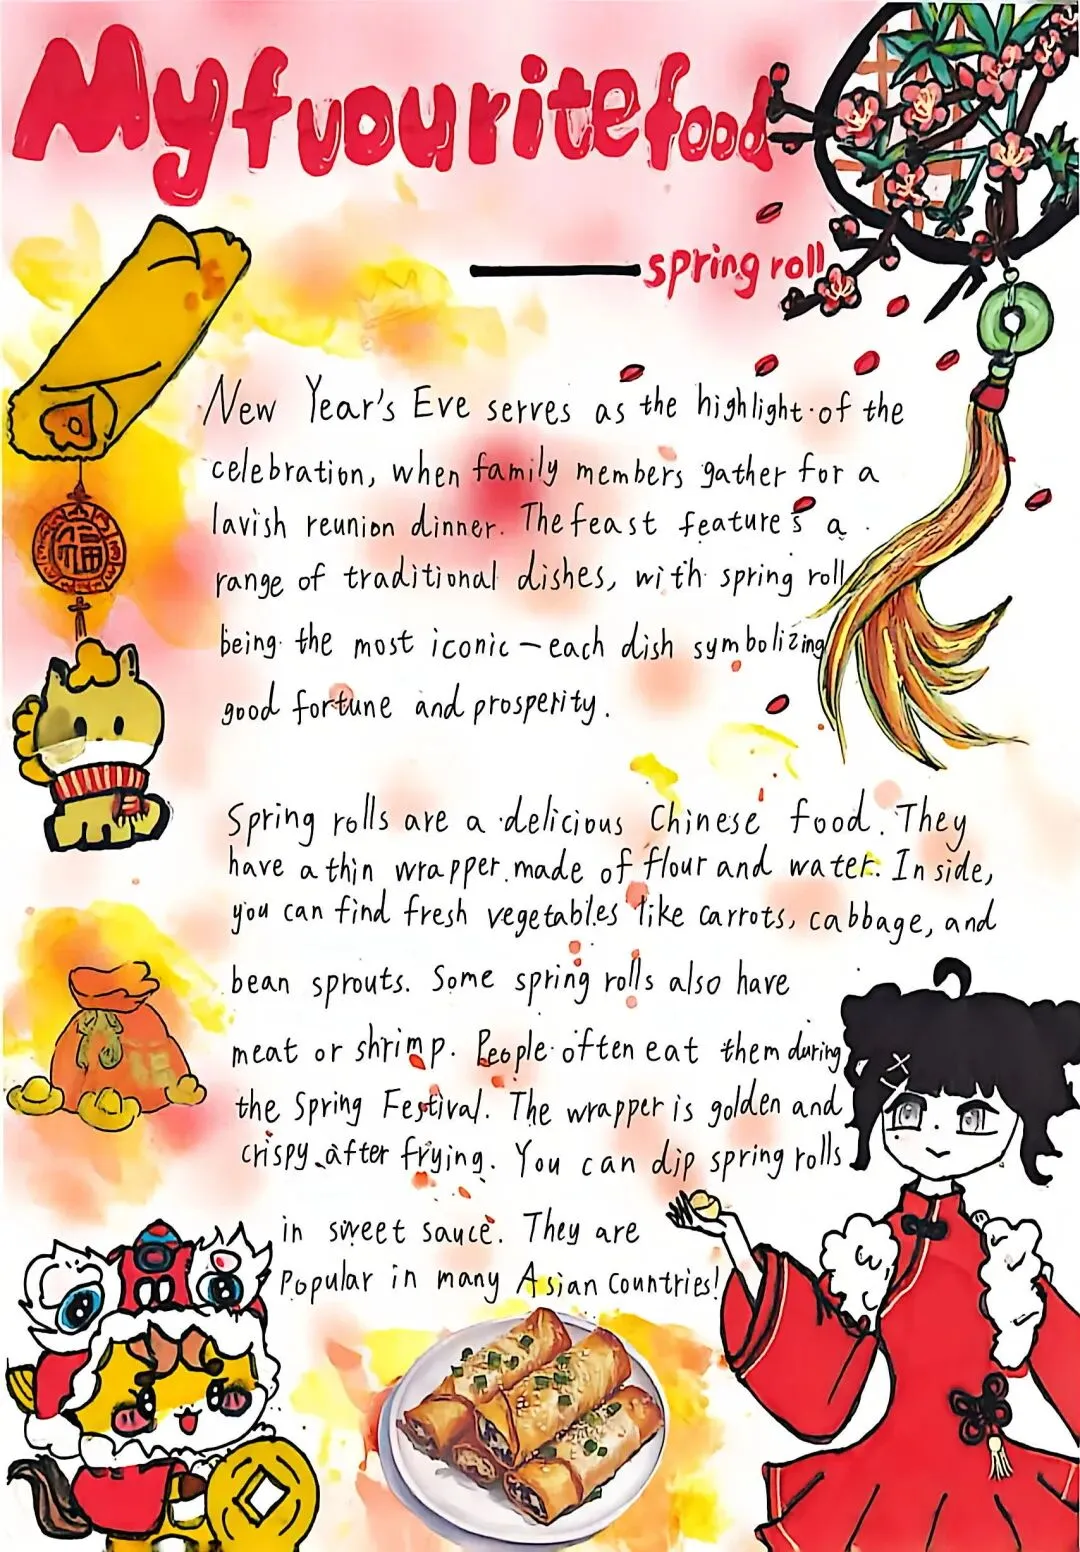 My fvourite food
——spring roll
New Year's Eve serves as the highlight of the
celebration, when family members gather for a
lavish reunion dinner. The feast features a
range of traditional dishes, with spring roll
being the most iconic—each dish symbolizing
good fortune and prosperity.
福
Spring rolls are a delicious Chinese food. They
have a thin wrapper made of flour and water. Inside,
you can find fresh vegetables like carrots, cabbage, and
bean sprouts. Some spring rolls also have
meat or shrimp. People often eat them during
the Spring Festival. The wrapper is golden and
crispy after frying. You can dip spring rolls
in sweet sauce. They are
Popular in many Asian Countries!